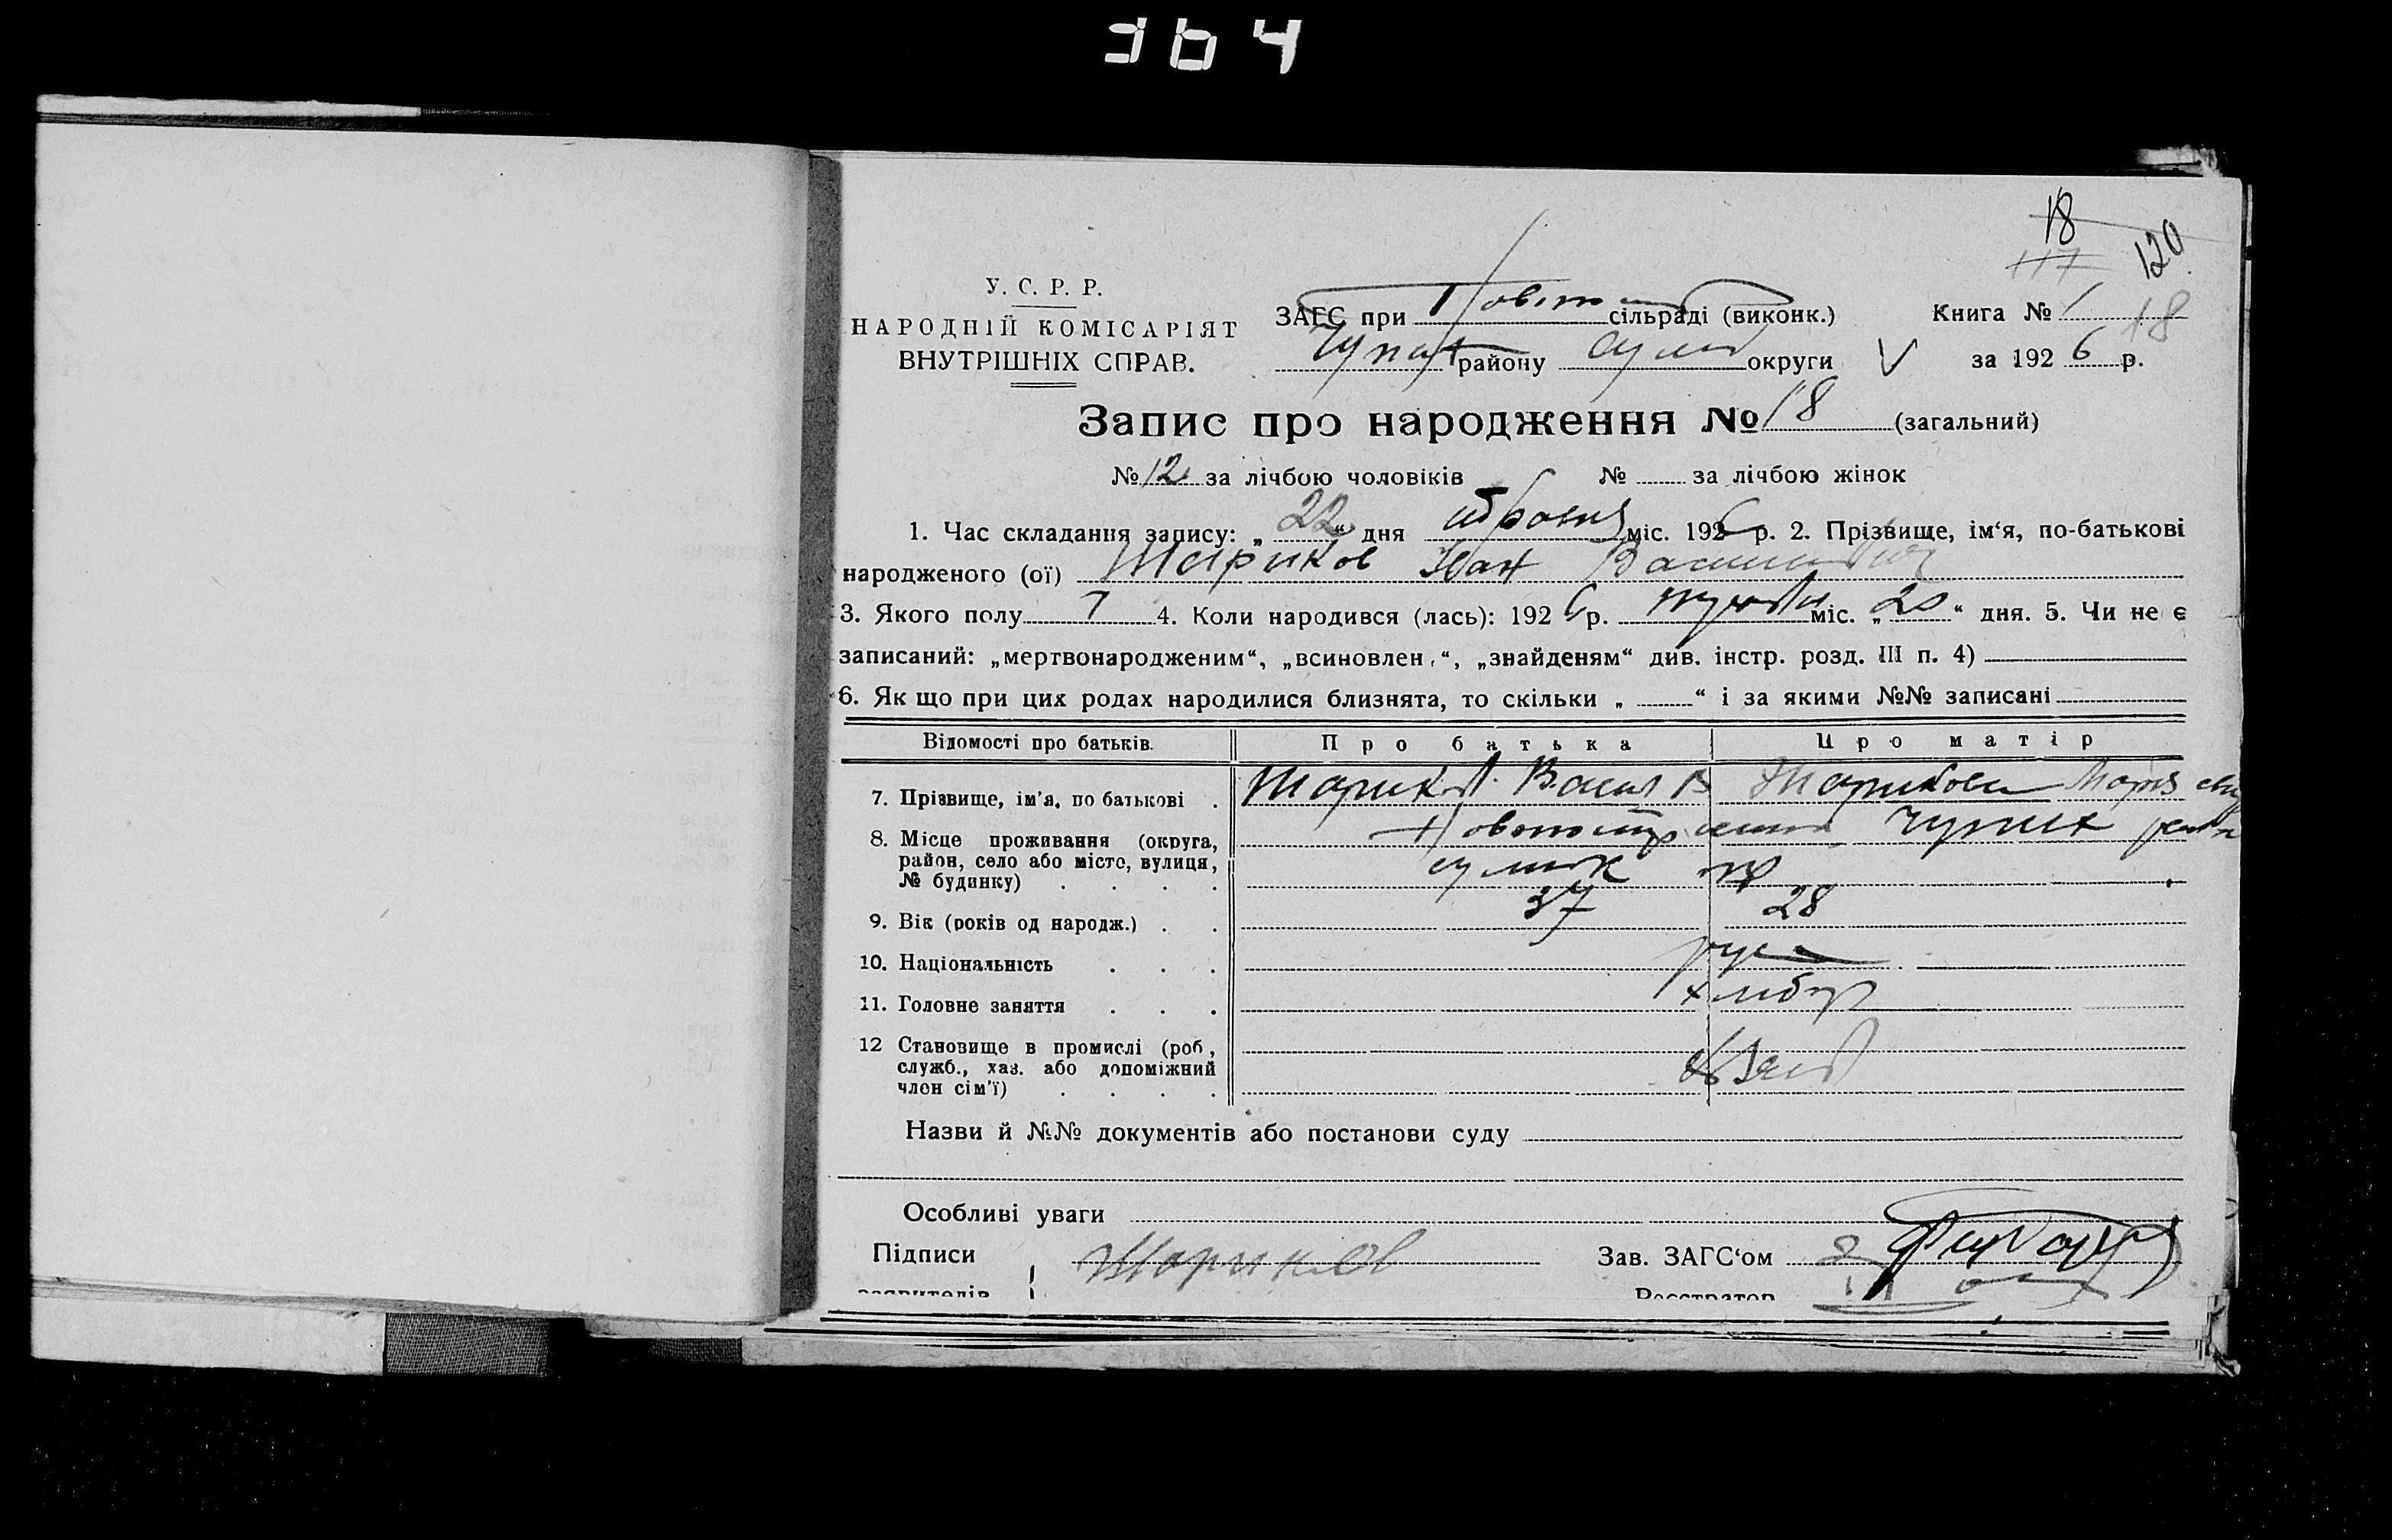 364
18
117
120
У. С. Р. Р.
НАРОДНІЙ КОМІСАРІЯТ
ВНУТРІШНІХ СПРАВ.
ЗАГС при сільраді (виконк.)
району округи
Книга № 1
18
за 1926 р.
Запис про народження № 18 (загальний)
№ 12 за лічбою чоловіків № за лічбою жінок
1. Час складання запису: „22“ дня міс. 1926 р. 2. Прізвище, ім‘я, по-батькові
народженого (ої) Шариков Іван Васильович
3. Якого полу 4. Коли народився (лась): 1926 р. міс. „20“ дня. 5. Чи не є
записаний: „мертвонародженим“, „всиновлен.“, „знайденям“ див. інстр. розд. III п. 4)
6. Як що при цих родах народилися близнята, то скільки „ “ і за якими №№ записані
Відомості про батьків. Про батька Про матір
7. Прізвище, ім’я, по батькові . Шариков Васил В Шарикова Марія
8. Місце проживання (округа,
район, село або місто, вулиця,
№ будинку) . . . .
9. Вік (років од народж.) . . 37 28
10. Національність . . . рус
11. Головне заняття . . . хлібор
12 Становище в промислі (роб.,
служб., хаз. або допоміжний
член сім’ї) . . . .
Назви й №№ документів або постанови суду
Особливі уваги
Підписи Шариков Зав. ЗАГС‘ом
заявителів Реєстратор